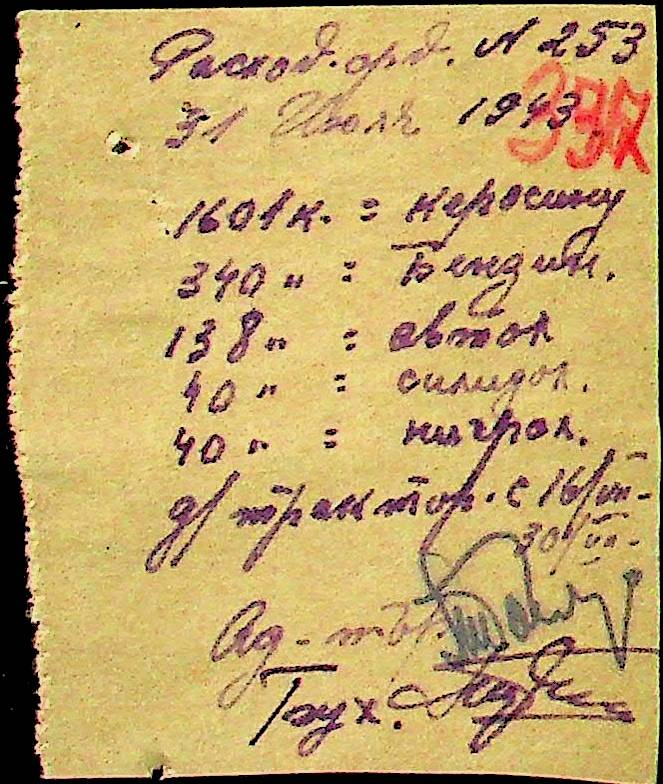 Расход. орд. N 253
31 Июля 1943
337
1601 к. = керосину
340 " = Бензин.
138 " = автол
40 " = солидол.
40 " = нигрол.
д/ трактор. с 16/VII-
30/VII-
Ад-тор
Глух.